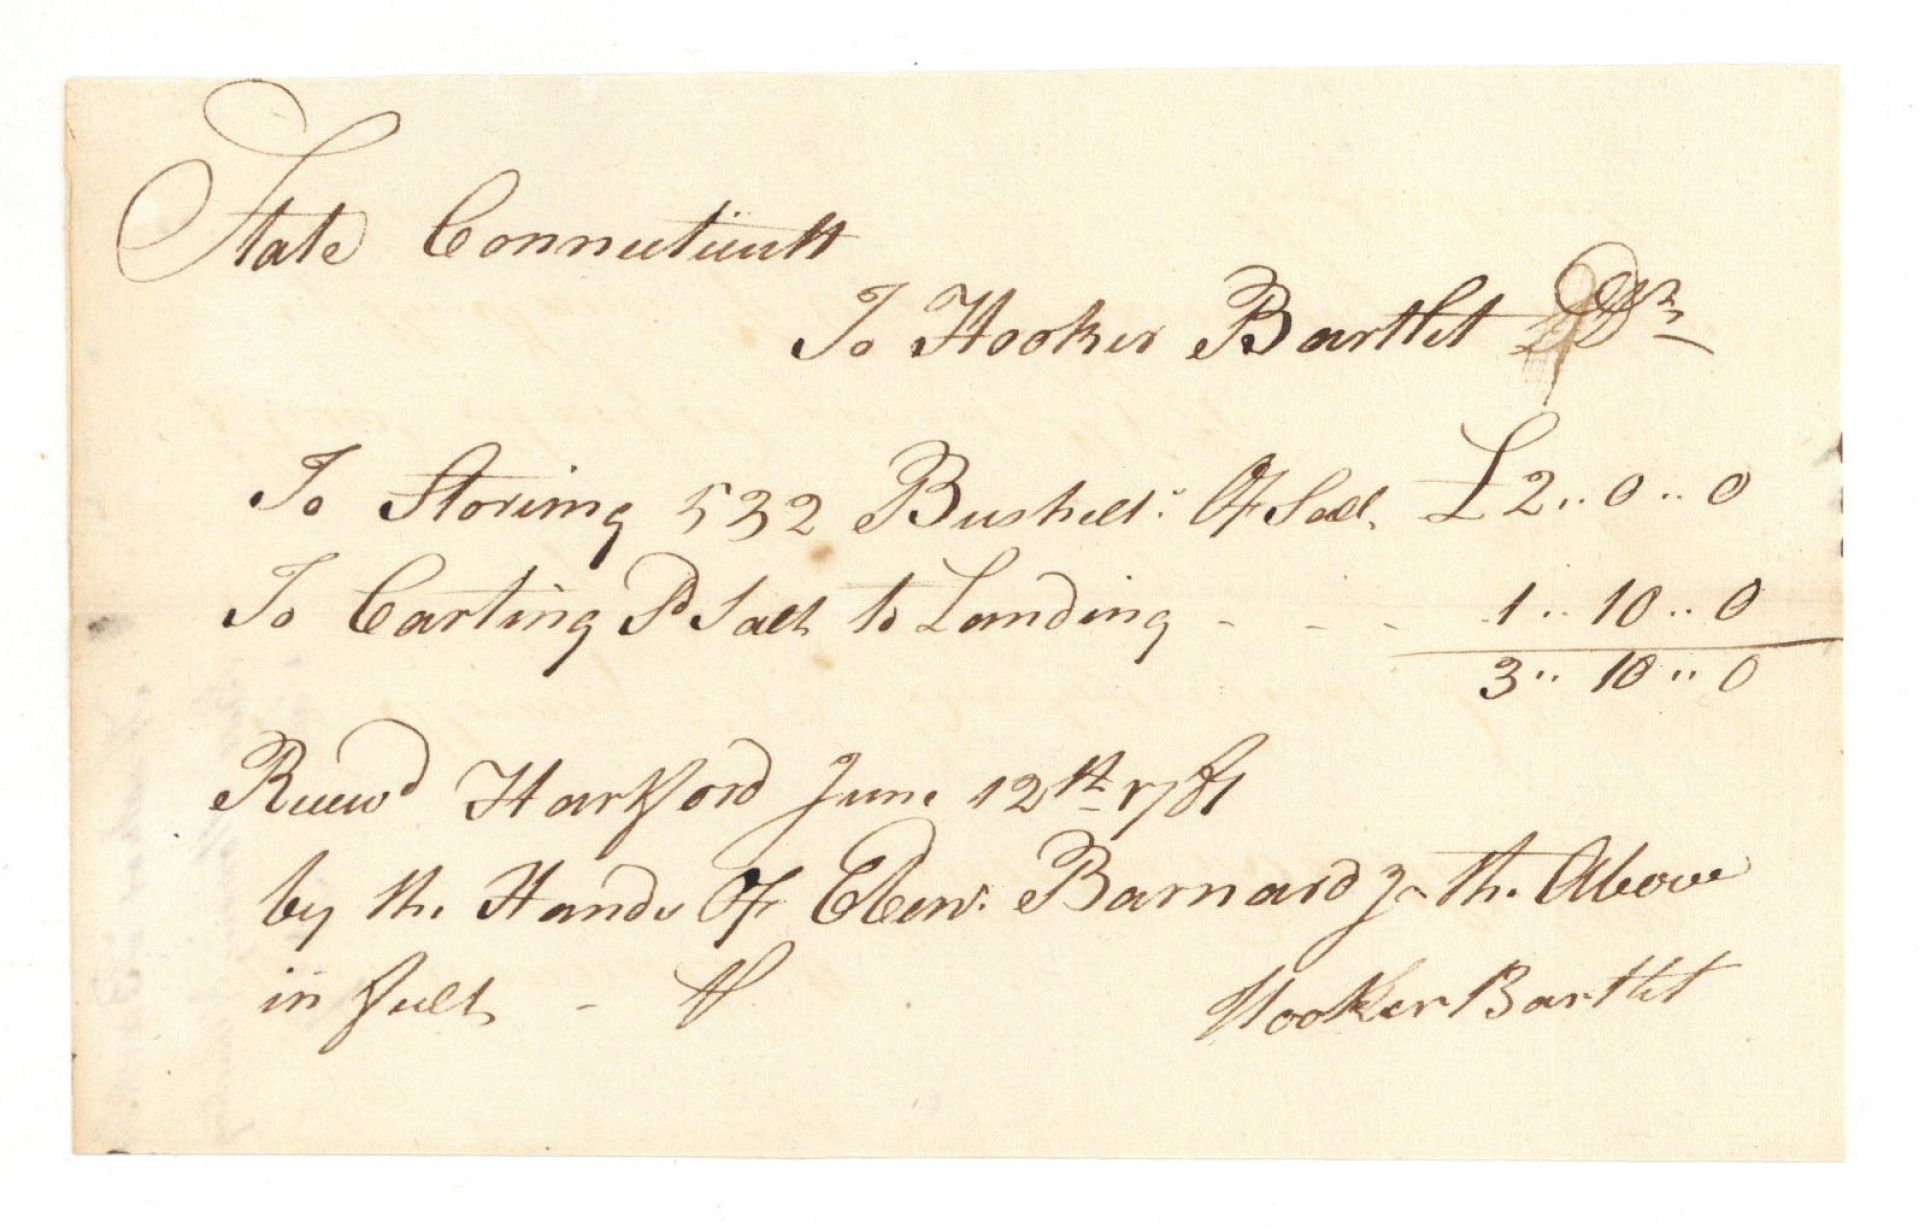 State Connecticutt
To Hooker Bartlet Dr
To Storeing 532 Bushels Of Salt £ 2 .. 0 .. 0
To Carting Sd Salt to Landing - - - 1 .. 10 .. 0
3 .. 10 .. 0
Receivd Hartford June 12th 1781
by the Hands Of Eben. Barnard Jr the Above
in full -
Hooker Bartlet